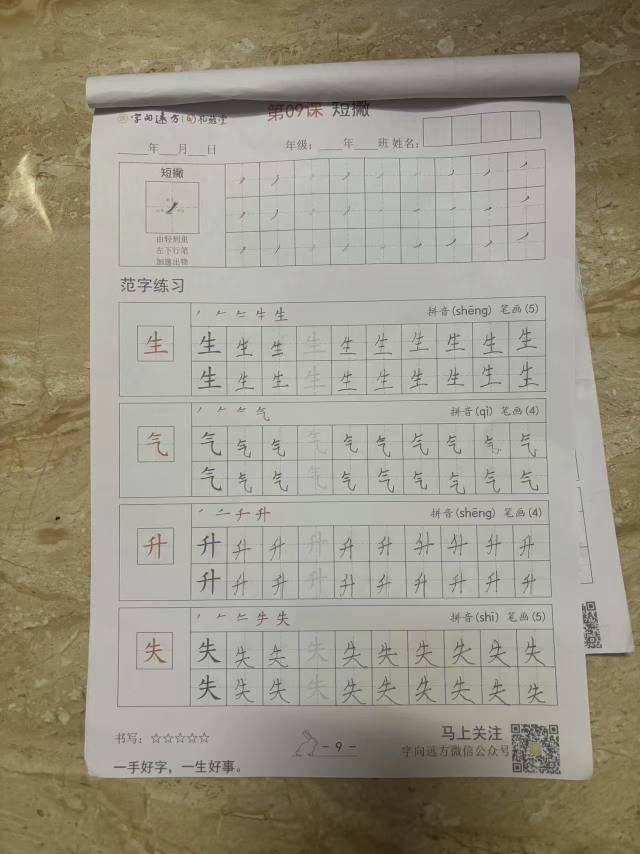 字向远方
第09课 短撇
年 月 日 年级： 年 班 姓名：
短撇
由轻到重
左下行笔
加速出锋
范字练习
生 拼音(shēng) 笔画(5)
生 生 生 生 生 生 生 生 生 生
生 生 生 生 生 生 生 生 生 生
气 拼音(qì) 笔画(4)
气 气 气 气 气 气 气 气 气 气
气 气 气 气 气 气 气 气 气 气
升 拼音(shēng) 笔画(4)
升 升 升 升 升 升 升 升 升 升
升 升 升 升 升 升 升 升 升 升
失 拼音(shī) 笔画(5)
失 失 失 失 失 失 失 失 失 失
失 失 失 失 失 失 失 失 失 失
书写：☆☆☆☆☆
- 9 -
马上关注
字向远方微信公众号
一手好字，一生好事。